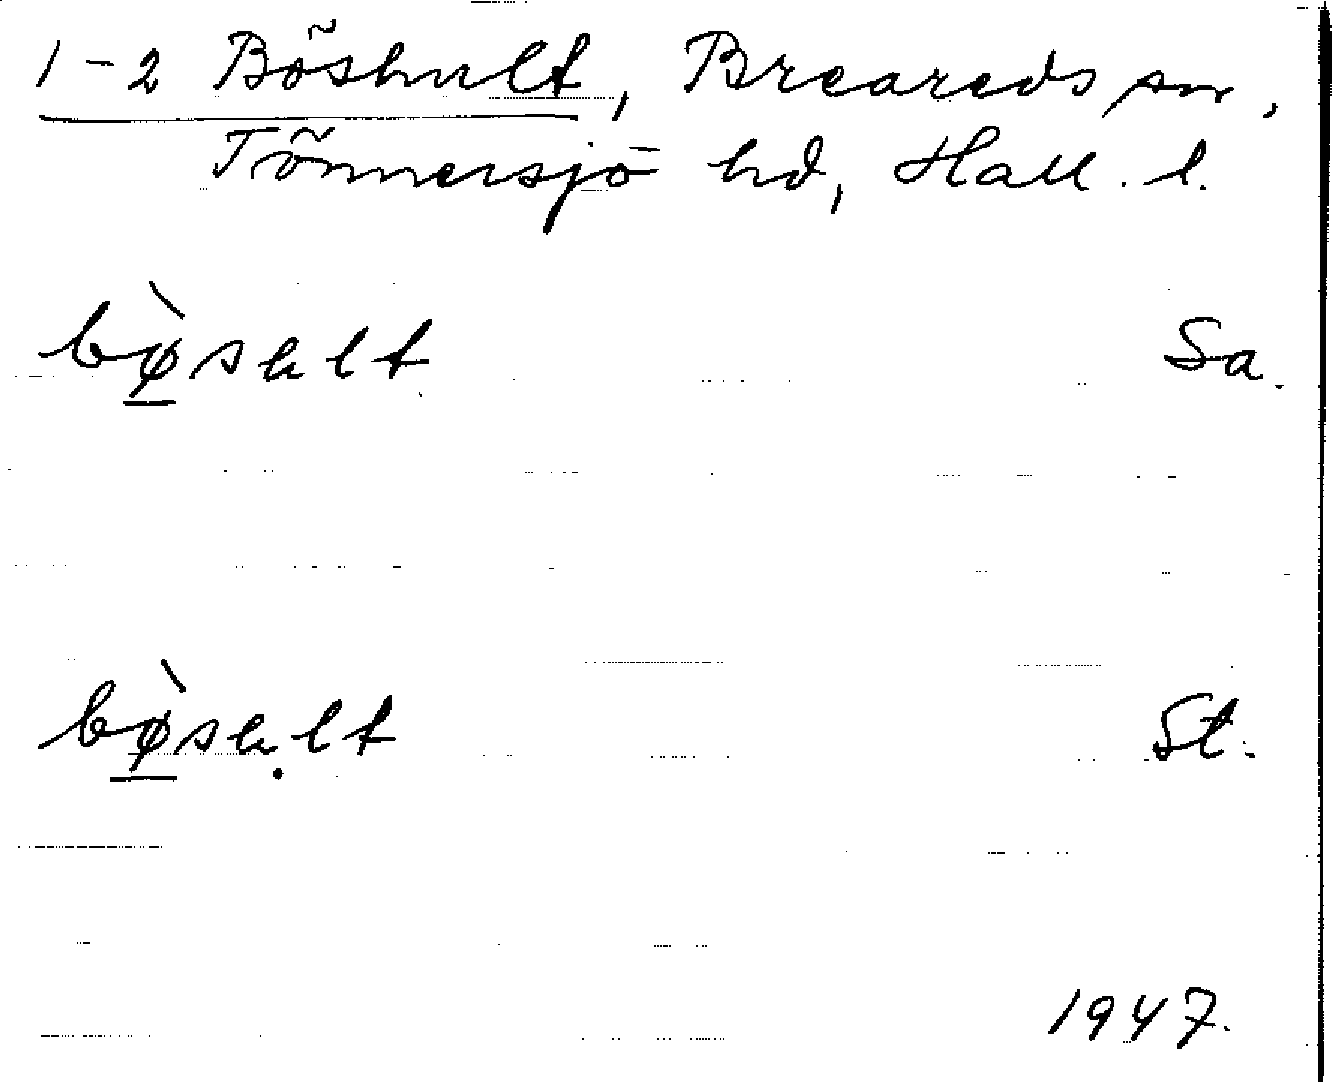 1-2 Böshult, Breareds sn,
Tönnersjö hd, Hall. l.
bø̀sult Sa.
bø̀sult St.
1947.